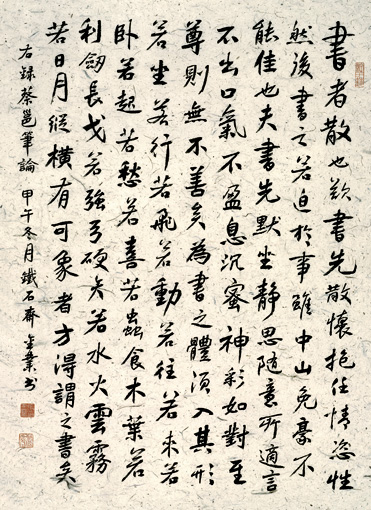 書者散也欲書先散懷抱任情恣性
然後書之若迫於事雖中山兔豪不
能佳也夫書先默坐靜思隨意所適言
不出口氣不盈息沉蜜神彩如對至
尊則無不善矣為書之體須入其形
若坐若行若飛若動若往若來若
臥若起若愁若喜若蟲食木葉若
利劔長戈若強弓硬矢若水火雲霧
若日月縱橫有可象者方得謂之書矣
右録蔡邕筆論 甲午冬月鐵石齋 业书